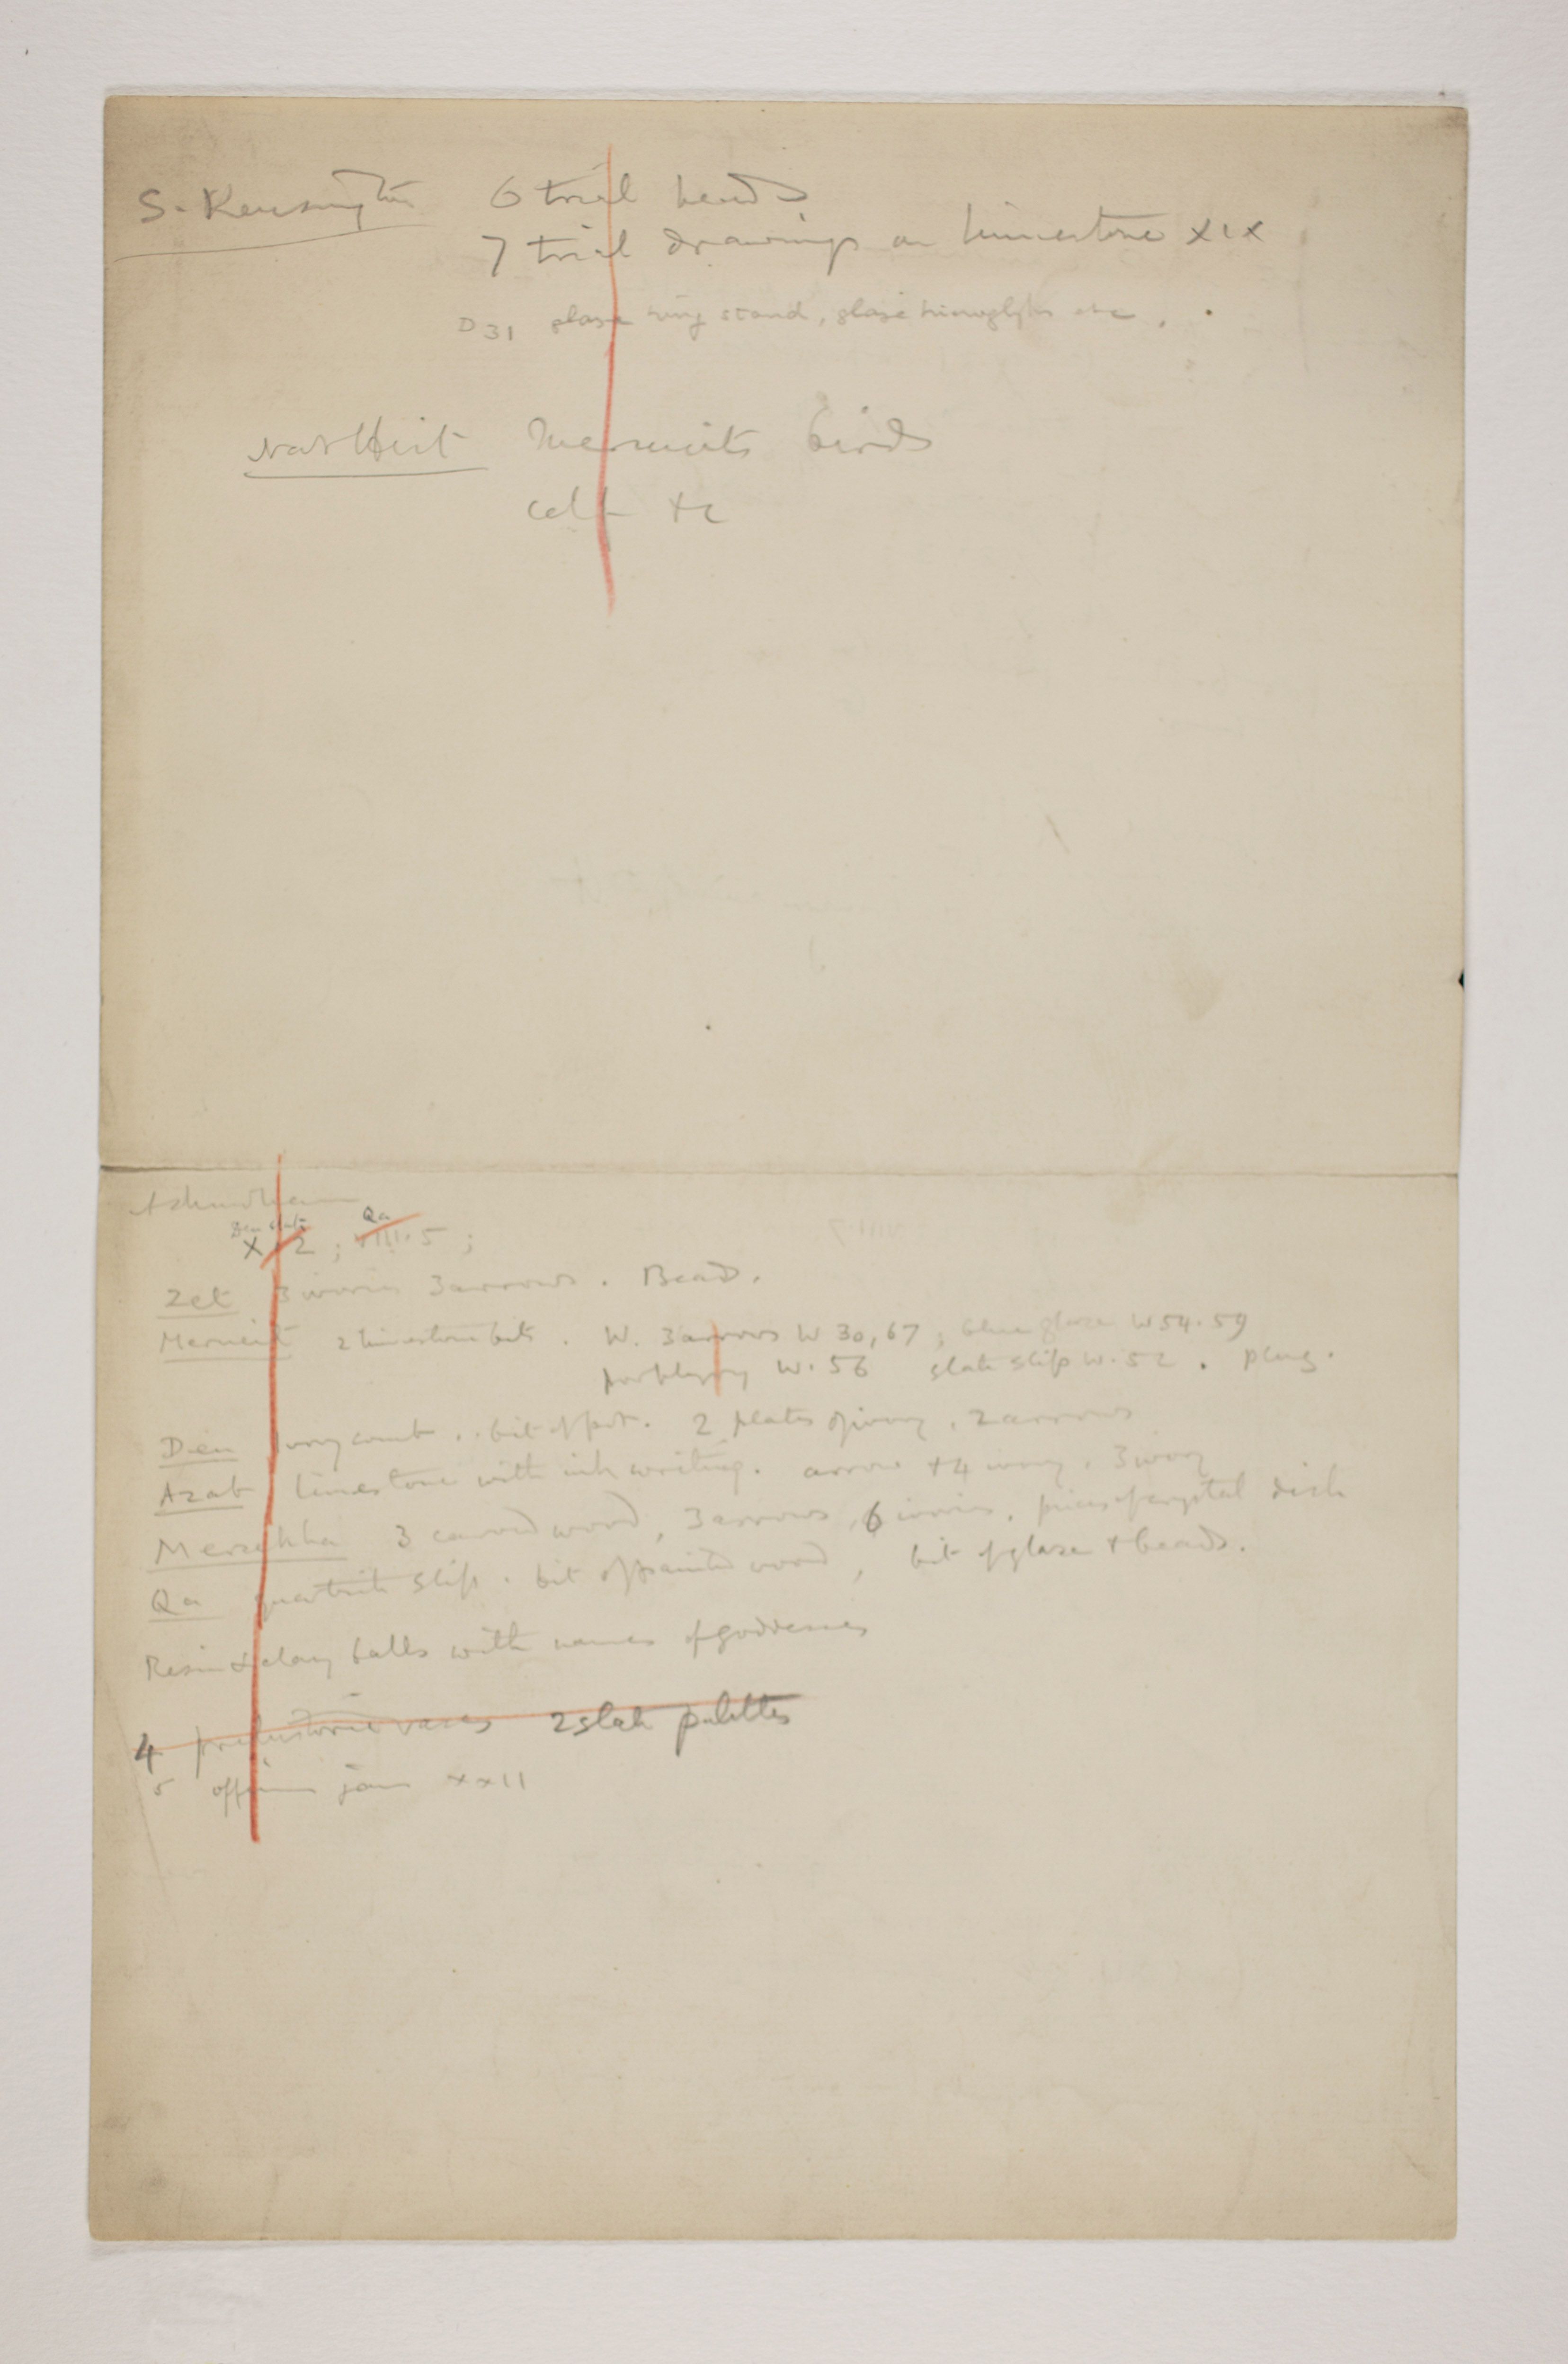 S. Kensington 6 trial heads
7 trial drawings on limestone XIX
D31 glaze ring stand, glaze hieroglyphs etc.
Nat Hist Merneits birds
calf &c
Den slate Qa
X · 2 ; VIII · 5 ;
Zet 3 ivories 3 arrows. Bead.
Merneit 2 limestone bits. W. 3 arrows W 30, 67 ; blue glaze W 54. 59
porphyry W. 56 slate slip W. 52. plug.
Den ivory comb. bit of pot. 2 plates of ivory, 2 arrows
Azab limestone with ink writing. arrow + 4 ivory, 3 ivory
Mersekha 3 carved wood, 3 arrows, 6 ivories. pieces of crystal dish
Qa quartzite slip. bit of painted wood, bit of glaze + beads.
Resin & clay balls with names of goddesses
4 prehistoric vases 2 slate palettes
5 jars XXII